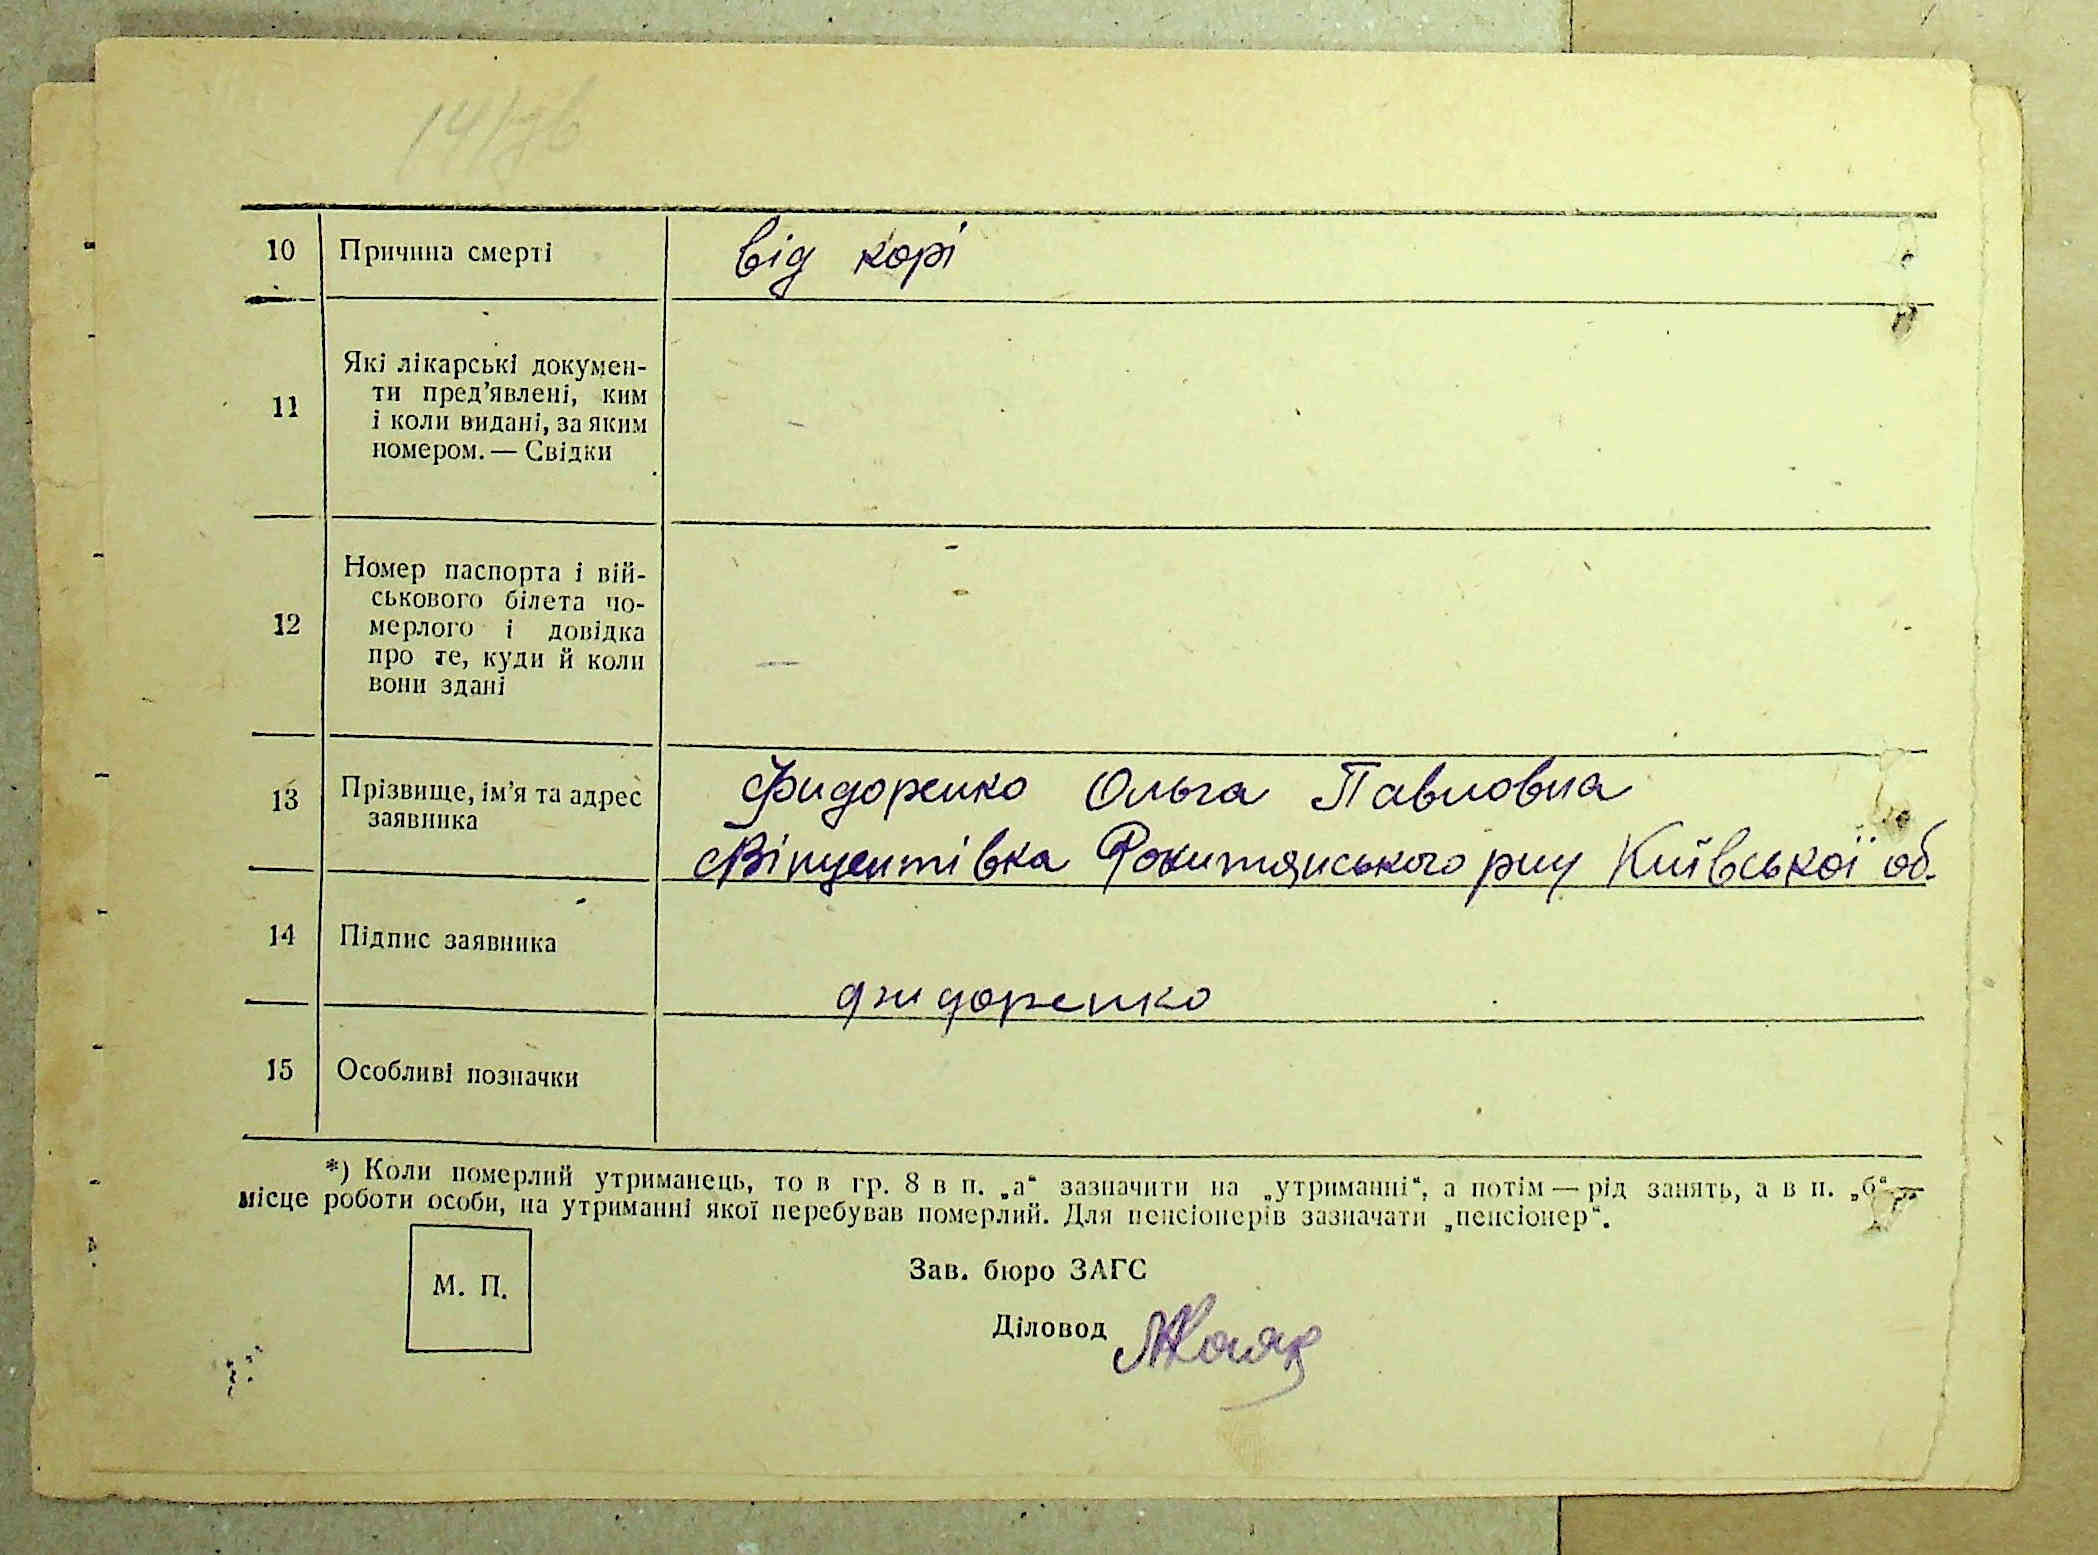 10 Причина смерті від корі
11 Які лікарські докумен-
ти пред’явлені, ким
і коли видані, за яким
номером. — Свідки –
12 Номер паспорта і вій-
ськового білета по-
мерлого і довідка
про те, куди й коли
вони здані —
13 Прізвище, ім’я та адрес
заявника
Фидоренко Ольга Павловна
Вінцентівка Рокитянського рну Київської об.
14 Підпис заявника
Фидоренко
15 Особливі позначки
*) Коли померлий утриманець, то в гр. 8 в п. „а“ зазначити на „утриманні“, а потім — рід занять, а в п. „б“ —
місце роботи особи, на утриманні якої перебував померлий. Для пенсіонерів зазначати „пенсіонер“.
М. П.
Зав. бюро ЗАГС
Діловод